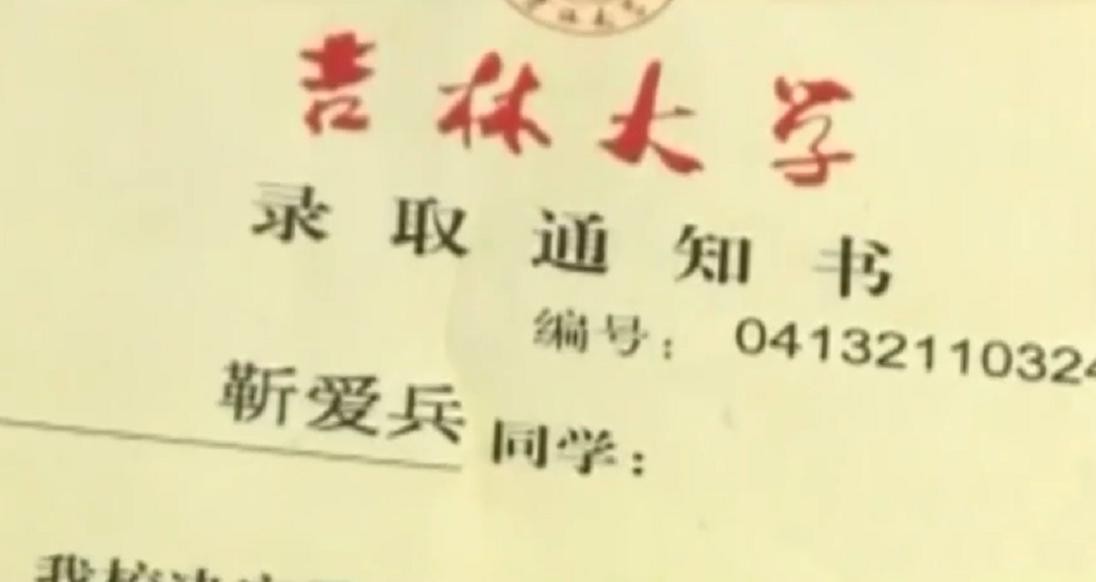 吉林大学
录取通知书
编号： 04132110324
靳爱兵 同学：
我校决定